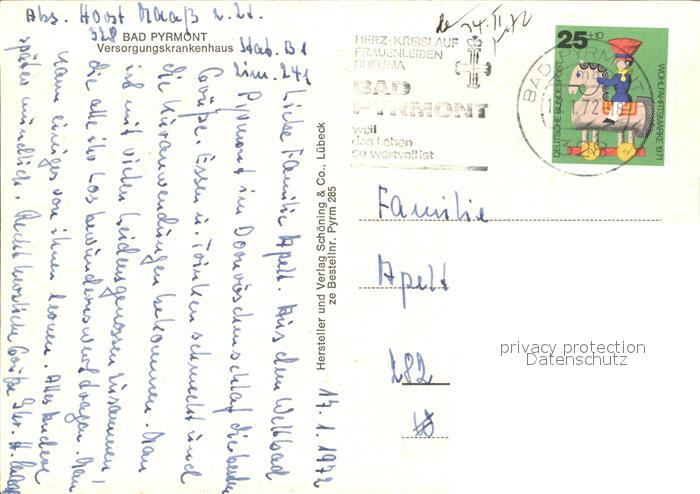 Abs. Horst Maaß z. Zt.
328 BAD PYRMONT
Versorgungskrankenhaus Stat. B1
Zim. 241
14.1.1972
Liebe Familie Apelt. Aus dem Weltbad
Pyrmont im Dornröschenschlaf die besten
Grüße. Essen u. Trinken schmeckt und
die Kuranwendungen bekommen. Man
ist mit vielen Leidensgenossen zusammen,
die alle ihr Los bewundernswert tragen. Man
kann einiges von ihnen lernen. Alles andere
später mündlich. Recht herzliche Grüße Ihr H. Maaß
Hersteller und Verlag Schöning & Co., Lübeck
ze Bestellnr. Pyrm 285
HERZ-KREISLAUF
FRAUENLEIDEN
RHEUMA
BAD
PYRMONT
weil
das Leben
so wertvoll ist
BAD PYRMONT
72
328
25+10
DEUTSCHE BUNDESPOST
WOHLFAHRTSMARKE 1971
Familie
Apelt
282
privacy protection
Datenschutz